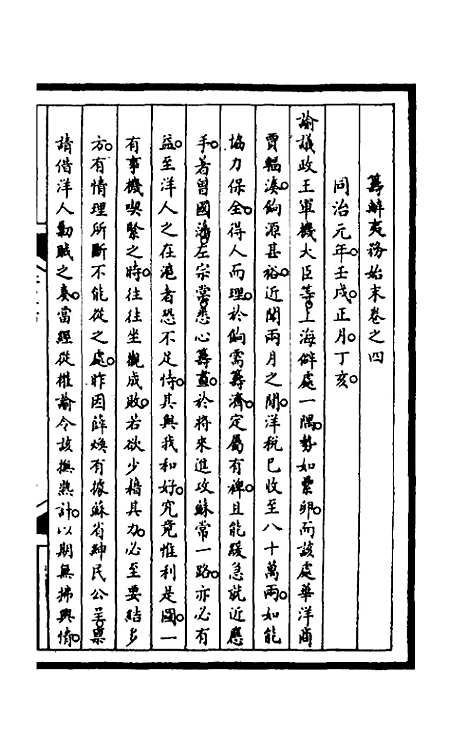 籌辦夷務始末卷之四
同治元年壬戌正月丁亥。
諭議政王軍機大臣等。上海僻處一隅。勢如累卵。而該處華洋商
賈輻湊。餉源甚裕。近聞兩月之閒。洋稅已收至八十萬兩。如能
協力保全。得人而理。於餉需籌濟。定屬有裨。且能緩急就近應
手。著曾國藩左宗棠。悉心籌畫。於將來進攻蘇常一路。亦必有
益。至洋人之在滬者。恐不足恃。其與我和好。究竟惟利是圖。一
有事機喫緊之時。往往坐觀成敗。若欲少藉其力。必至要結多
方。有情理所斷不能從之處。昨因薛煥有據蘇省紳民公呈。稟
請借洋人勦賊之奏。當經從權諭令該撫熟計。以期無拂輿情。